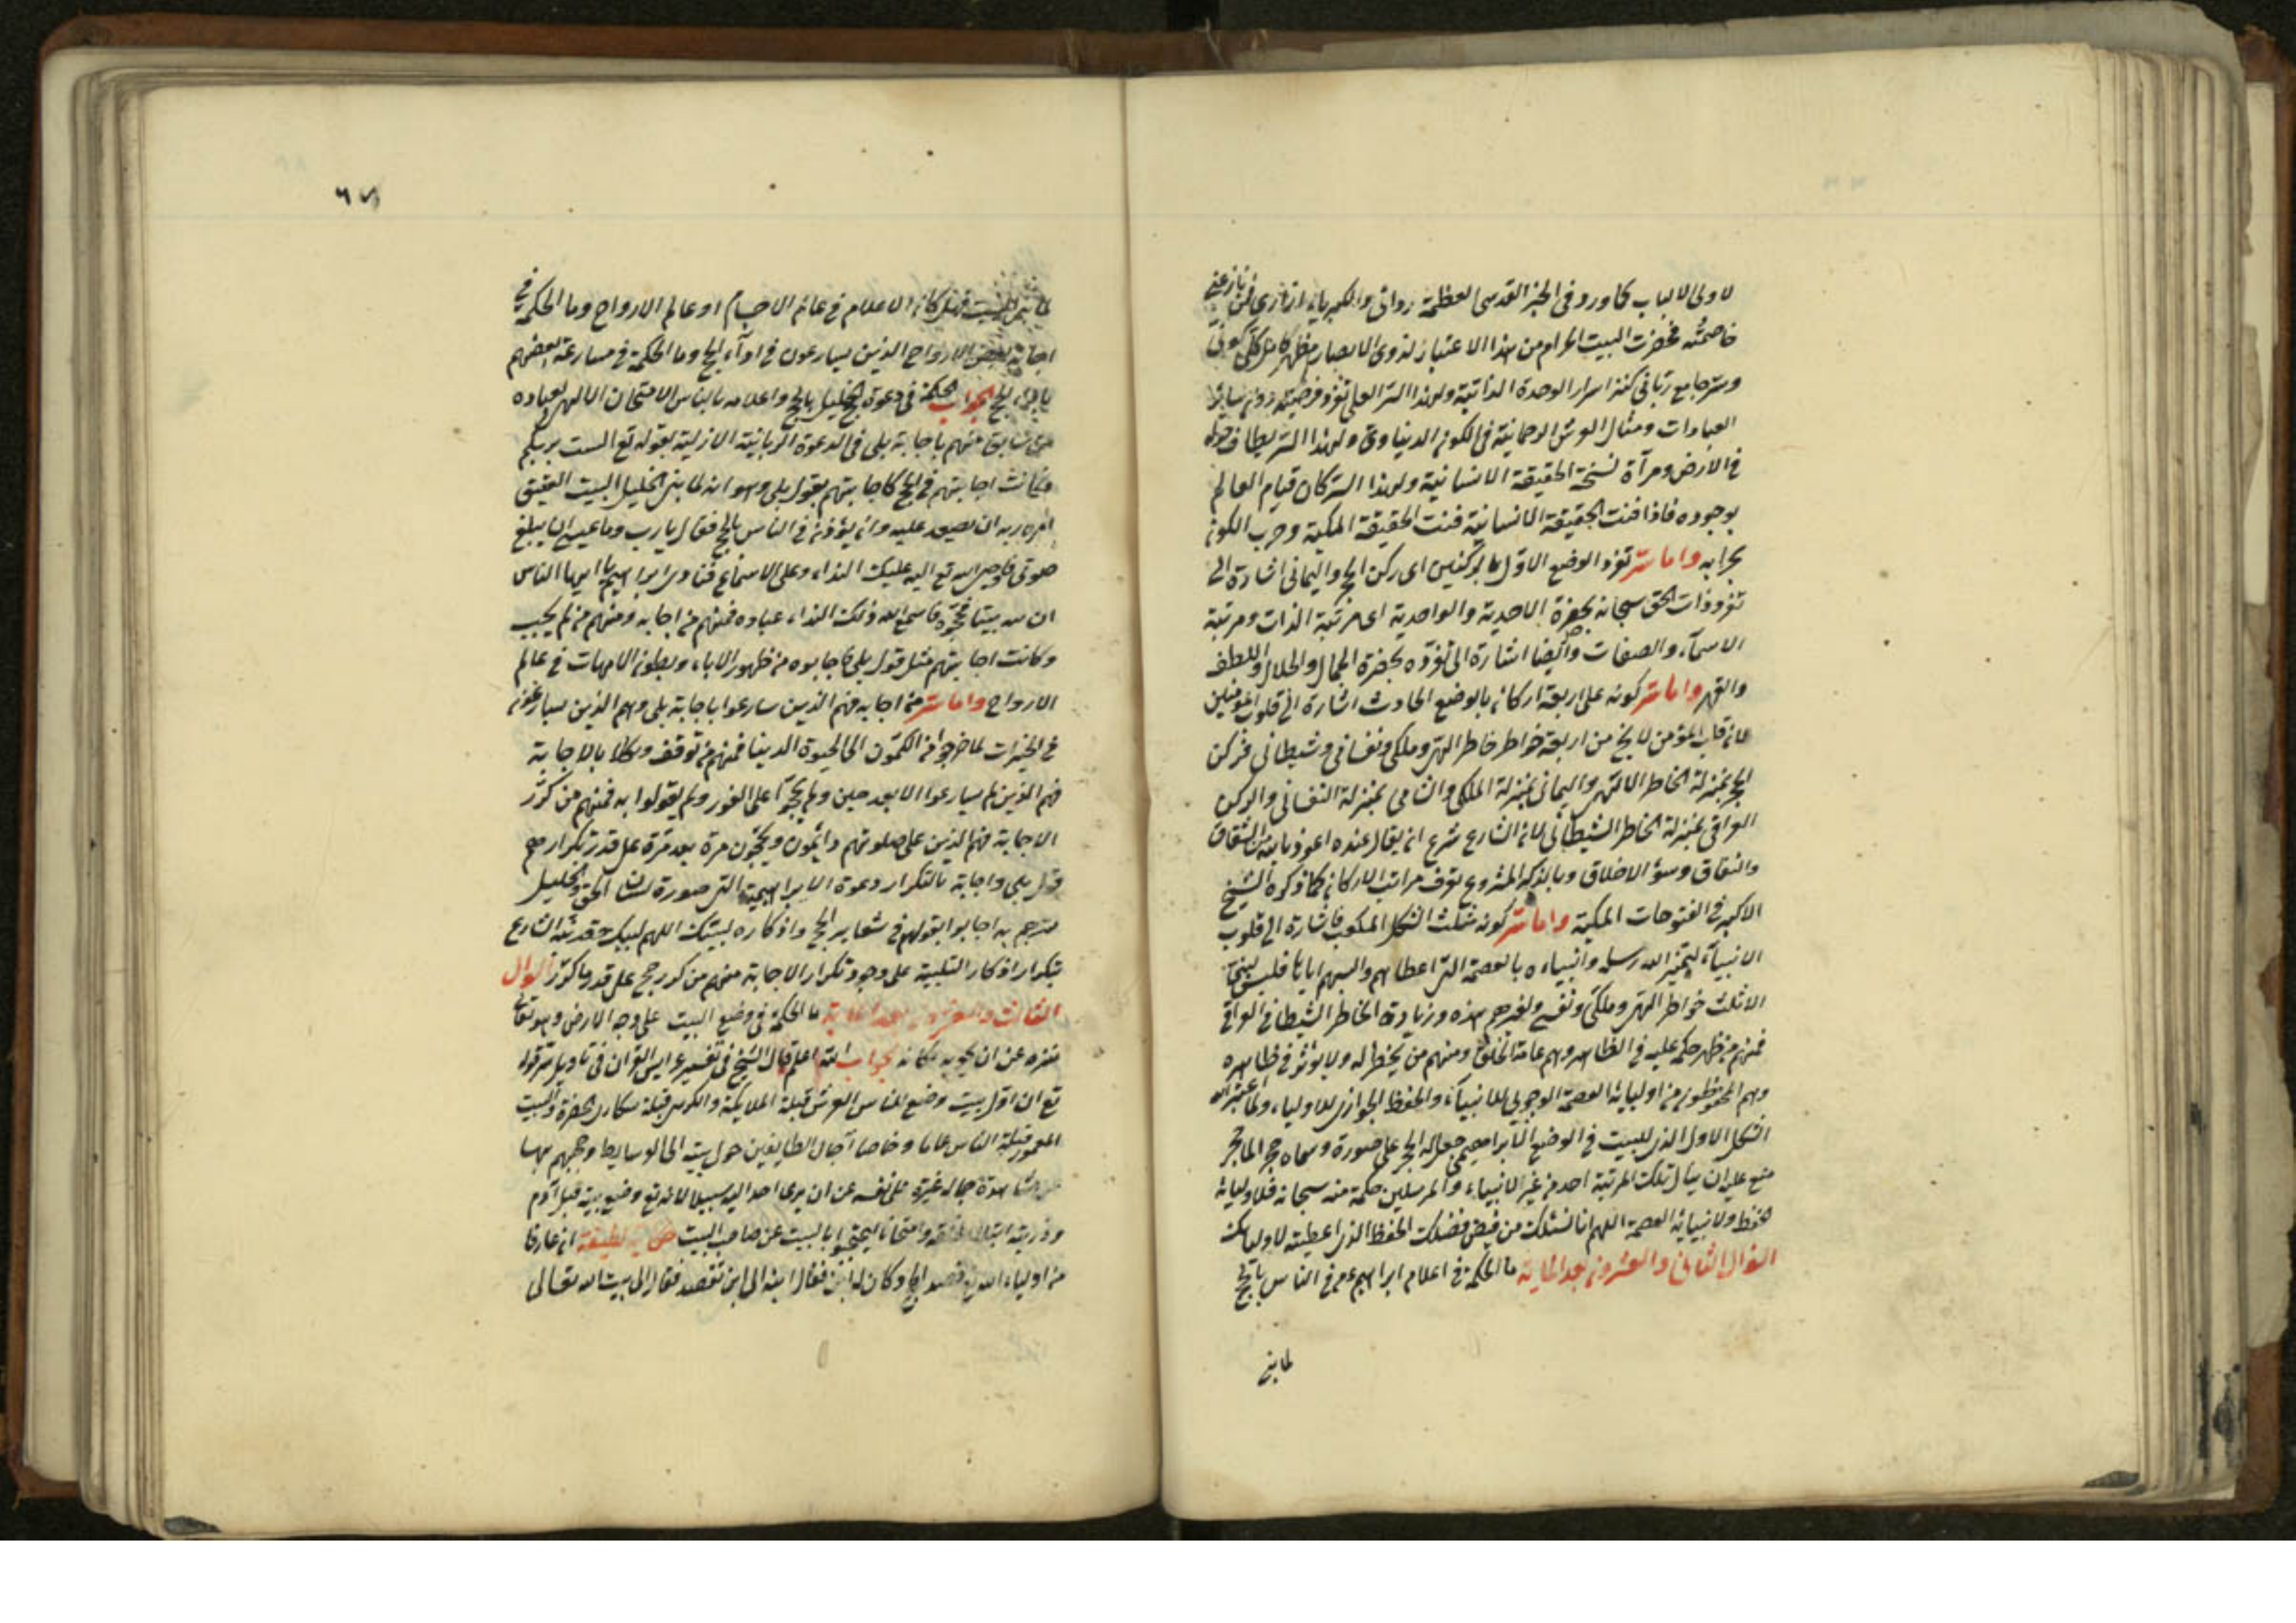 لاولى الالباب كما ورد فى الخبر القدسى العظمة ردائى والكبرياء ازارى فمن نازعنى
خاصمته فحضرت البيت الحرام من هذا الاعتبار لذوى الابصار مظهر كامل كلى كونى
وسر جامع ربانى كنز اسرار الوحدة الذاتية ولهذا السر العلى تفرد فرضيته دون سائر
العبادات ومثال العرش الرحمانية فى الكون الدنياوى ولهذا السر يطاف حوله
فى الارض ومرآة نسخة الحقيقة الانسانية ولهذا السر كان قيام العالم
بوجوده فاذا فنت الحقيقة الانسانية فنت الحقيقة المكية وخرب الكون
بخرابه واما سر تفرد الوضع الاول بالركنين اى ركن الحجر واليمانى اشارة الى
تفرد ذات الحق سبحانه بحضرة الاحدية والواحدية اى مرتبة الذات ومرتبة
الاسماء والصفات وايضا اشارة الى تفرده بحضرة الجمال والجلال واللطف
والقهر واما سر كونه على اربعة اركان بالوضع الحادث اشارة الى قلوب المؤمنين
لان قلب المؤمن لا يخ من اربعة خواطر خاطر الهى وملكى ونفسانى وشيطانى فركن
الحجر بمنزلة الخاطر الالهى واليمانى بمنزلة الملكى والشامى بمنزلة النفسانى والركن
العراقى بمنزلة الخاطر الشيطانى لان الشارع شرع ان يقال عنده اعوذ بالله من الشقاق
والنفاق وسوء الاخلاق وبالذكر المشروع يعرف مراتب الاركان كما ذكره الشيخ
الاكبر فى الفتوحات المكية واما سر كونه مثلث الشكل المكعب فاشارة الى قلوب
الانبياء ليميز الله رسله وانبياءه بالعصمة التى اعطاهم والبسهم اياها فليس لنبى
الا ثلث خواطر الهى وملكى ونفسى ولغيرهم هذه وزيادة الخاطر الشيطانى العراقى
فمنهم من ظهر حكمه عليه فى الظاهر وهم عامة الخلق ومنهم من يخطر له ولا يؤثر فى ظاهره
وهم المحفوظون من اوليائه العصمة الوجوبى للانبياء والحفظ الجوازى للاولياء ولما اعتبر الله
الشكل الاول الذى للبيت فى الوضع الابراهيمى جعل له الحجر على صورة وسماه حجر الما حجر
منع عليه ان ينال تلك المرتبة احد من غير الانبياء والمرسلين حكمة منه سبحانه فلاوليائه
الحفظ ولانبيائه العصمة اللهم انا نسئلك من فيض فضلك الحفظ الذى اعطيته لاوليائك
السؤال الثانى والعشرون بعد الماية ما الحكمة فى اعلام ابراهيم عم فى الناس بالحج
لما بنى
٦٧
لما بنى البيت فهل كان الاعلام فى عالم الاجسام او عالم الارواح وما الحكمة فى
اجابة بعض الارواح الذين يسارعون فى اداء الحج وما الحكمة فى مسارعة بعضهم
الحج الجواب الحكمة فى دعوة الخليل بالحج واعلامه بالناس الامتحان الالهى لعباده
منهم باجابة بلى فى الدعوة الربانية الازلية بقوله تع الست بربكم
فكانت اجابتهم فى الحج كاجابتهم بقول بلى وهو انه لما بنى الخليل البيت العتيق
امره ربه ان يصعد عليه وان يؤذن فى الناس بالحج فقال يا رب وما عسى ان يبلغ
صوتى فاوحى الله تع اليه عليك النداء وعلى الاسماع فنادى ابراهيم يا ايها الناس
ان لله بيتا فحجوه فاسمع الله ذلك النداء عباده فمنهم من اجابه ومنهم من لم يجيب
وكانت اجابتهم مثل قول بلى فاجابوه من ظهور الاباء وبطون الامهات فى عالم
الارواح واما سر من اجابه فهم الذين سارعوا باجابة بلى وهم الذين يسارعون
فى الخيرات لما خرجوا من الكمون الى الحيوة الدنيا فمنهم من توقف بالاجابة
فهم الذين لم يسارعوا الا بعد حين ولم يحجوا على الفور ولم يقولوا به فمنهم من كرر
الاجابة فهم الذين على صلوتهم دائمون ويحجون مرة بعد مرة على قدر تكرارهم
قول بلى واجابة بالتكرار دعوة الابراهيمية التى صورة لسان الحق والخليل
مترجم به اجابوا بقولهم فى شعاير الحج واذكاره لبيك اللهم لبيك الشارع
بتكرار اذكار التلبية على وجود تكرار الاجابة منهم من كرر حج على قدر ما كرر السوال
الثالث والعشرون بعد الماية ما الحكمة فى وضع البيت على وجه الارض وهو تعالى
منزه عن ان يحويه مكانه الجواب الله اعلم قال الشيخ فى تفسير عرايس القران فى تاويل سر قوله
تع ان اول بيت وضع للناس العرش قبلة الملايكة والكرسى قبلة سكان الحضرة والبيت
المعمور قبلة الناس عاما وخاصا اجال الطايفين حول بيته الى الوسايط وحجبهم بها
عن مشاهدة جماله غيرة على نفسه عن ان يرى احد اليه سبيلا لانه تع وضع بيته قبل آدم
وذريته ابتلاء وامتحانا ليحتجبوا بالبيت عن صاحب البيت لطيفة ان عارفا
من اولياء الله قصد الحج وكان له ابن فقال ابنه الى اين تقصد فقال الى بيت الله تعالى